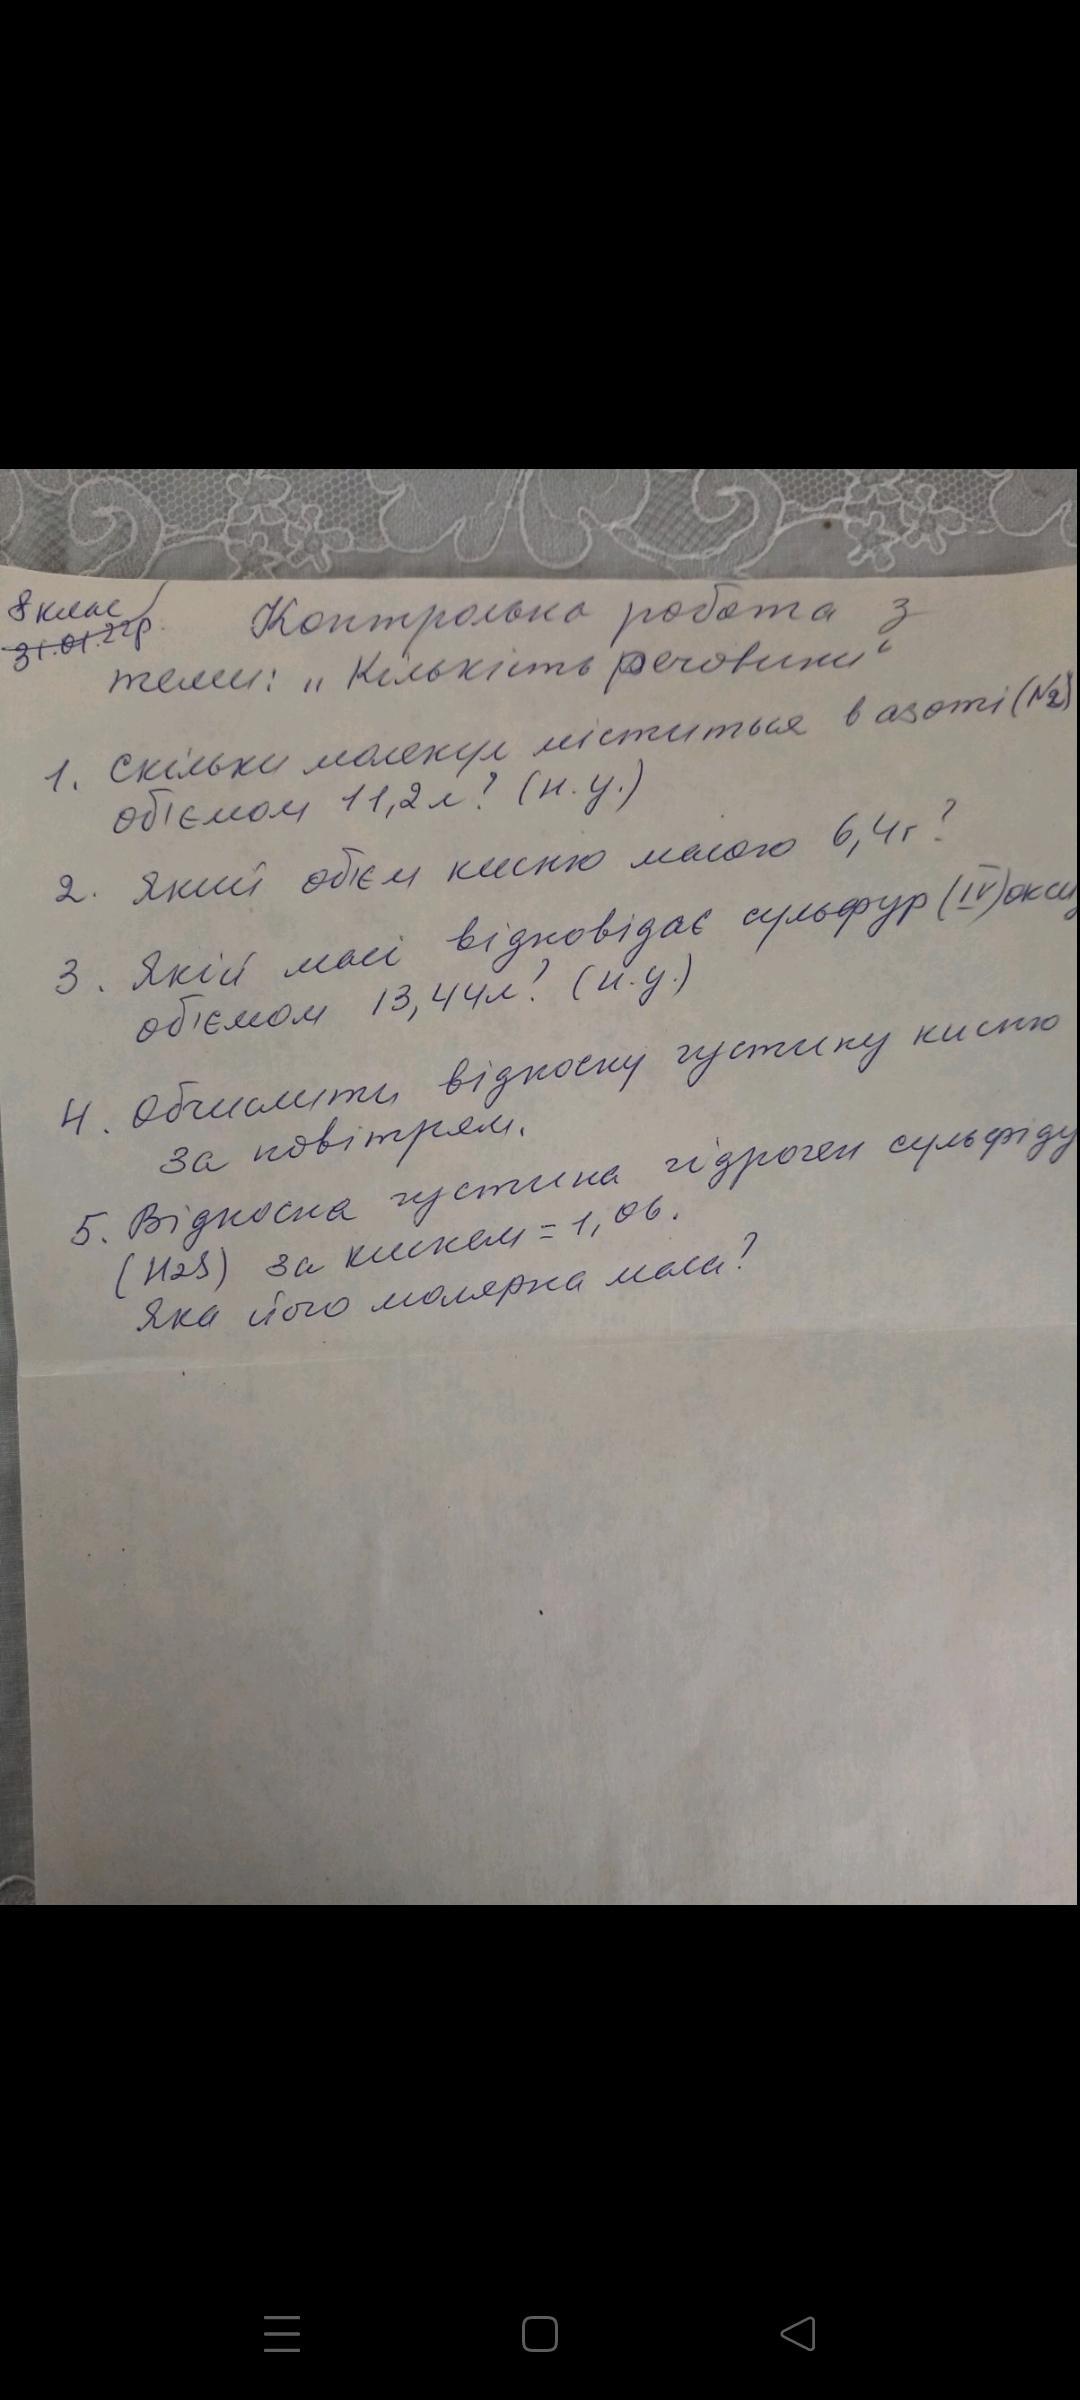 8 клас
31.01.22р.
Контрольна робота з
теми: „Кількість речовини“
1. Скільки молекул міститься в азоті (N2)
об'ємом 11,2л? (н.у.)
2. Який об'єм кисню масою 6,4г?
3. Якій масі відповідає сульфур (IV) оксид
об'ємом 13,44л? (н.у.)
4. Обчислити відносну густину кисню
за повітрям.
5. Відносна густина гідроген сульфіду
(H2S) за киснем = 1,06.
Яка його молярна маса?